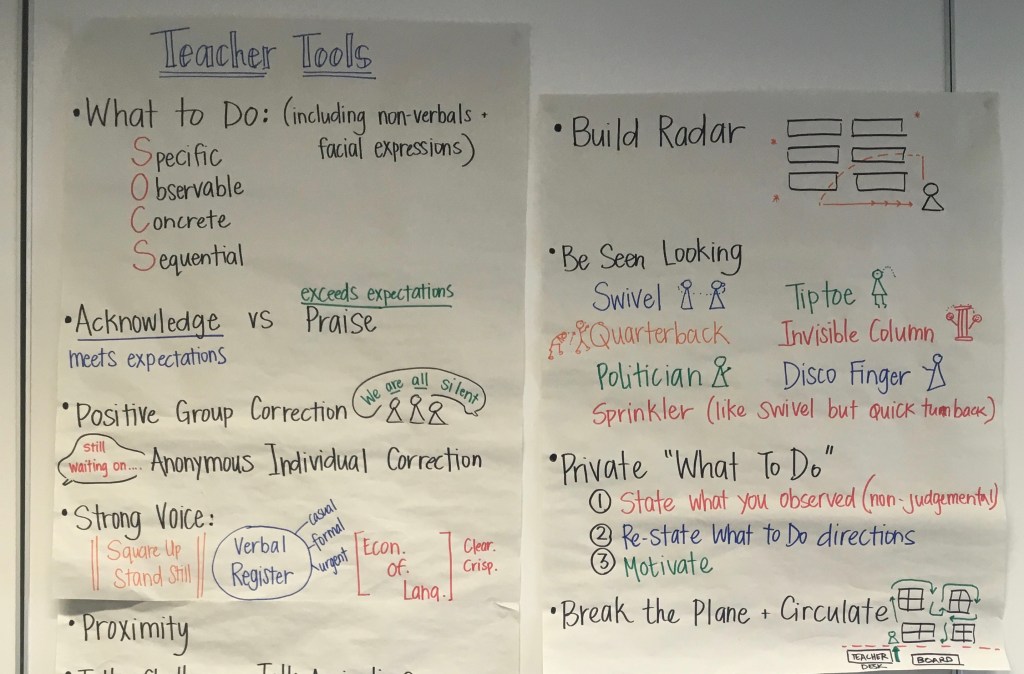 Teacher Tools
• What to Do: (including non-verbals +
facial expressions)
Specific
Observable
Concrete
Sequential
exceeds expectations
• Acknowledge vs Praise
meets expectations
• Positive Group Correction
We are all silent
still
waiting on....
Anonymous Individual Correction
• Strong Voice:
Square Up
Stand Still
Verbal
Register
casual
formal
urgent
Econ.
of.
Lang.
Clear.
Crisp.
• Proximity
• Build Radar
• Be Seen Looking
Swivel
Tiptoe
Quarterback
Invisible Column
Politician
Disco Finger
Sprinkler (like swivel but quick turnback)
• Private "What To Do"
① State what you observed (non-judgemental)
② Re-state What to Do directions
③ Motivate
• Break the Plane + Circulate
TEACHER
DESK
BOARD